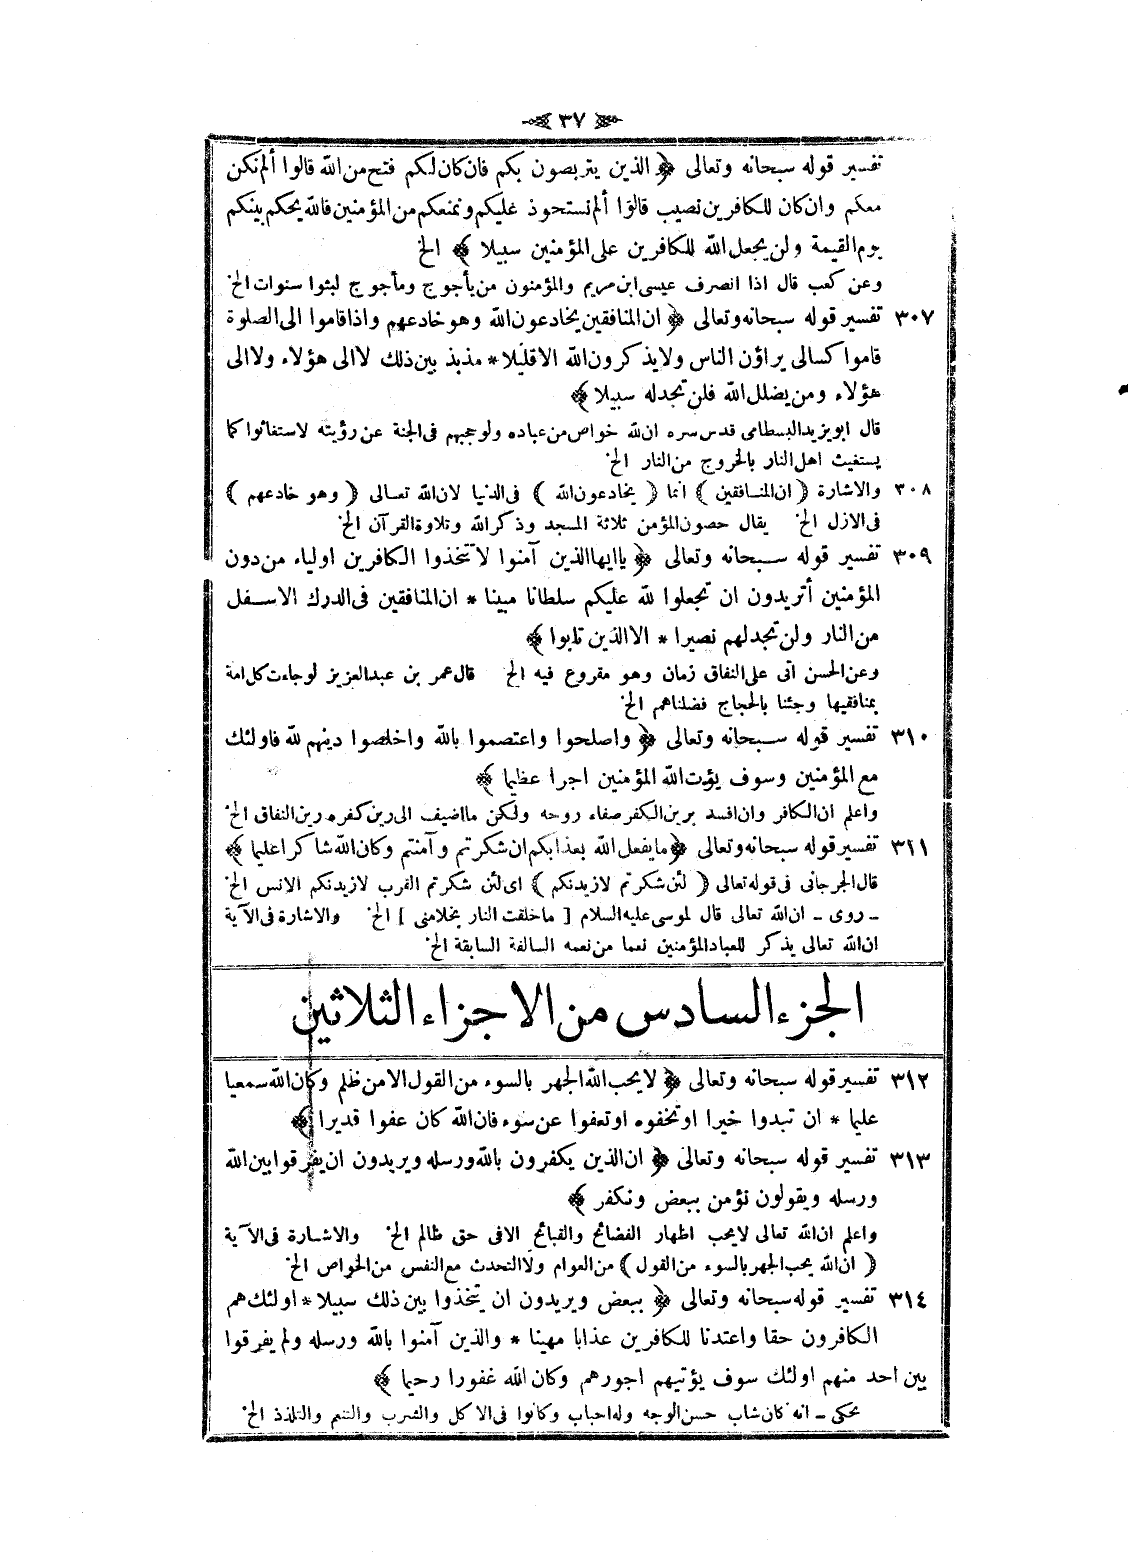 ٣٧
تفسير قوله سبحانه وتعالى ﴿ الذين يتربصون بكم فان كان لكم فتح من الله قالوا ألم نكن
معكم وان كان للكافرين نصيب قالوا ألم نستحوذ عليكم ونمنعكم من المؤمنين فالله يحكم بينكم
يوم القيمة ولن يجعل الله للكافرين على المؤمنين سبيلا ﴾ الخ
وعن كعب قال اذا انصرف عيسى ابن مريم والمؤمنون من يأجوج ومأجوج لبثوا سنوات الخ
٣٠٧ تفسير قوله سبحانه وتعالى ﴿ ان المنافقين يخادعون الله وهو خادعهم واذا قاموا الى الصلوة
قاموا كسالى يراؤن الناس ولا يذكرون الله الا قليلا * مذبذ بين ذلك لا الى هؤلاء ولا الى
هؤلاء ومن يضلل الله فلن تجد له سبيلا ﴾
قال ابو يزيد البسطامى قدس سره ان لله خواص من عباده ولو حجبهم فى الجنة عن رؤيته لاستغاثوا كما
يستغيث اهل النار بالخروج من النار الخ
٣٠٨ والاشارة ( ان المنافقين ) انما ( يخادعون الله ) فى الدنيا لان الله تعالى ( وهو خادعهم )
فى الازل الخ يقال حصون المؤمن ثلاثة المسجد وذكر الله وتلاوة القرآن الخ
٣٠٩ تفسير قوله سبحانه وتعالى ﴿ يا ايها الذين آمنوا لا تتخذوا الكافرين اولياء من دون
المؤمنين أتريدون ان تجعلوا لله عليكم سلطانا مبينا * ان المنافقين فى الدرك الاسفل
من النار ولن تجد لهم نصيرا * الا الذين تابوا ﴾
وعن الحسن اتى على النفاق زمان وهو مقروع فيه الخ قال عمر بن عبد العزيز لو جاءت كل امة
بمنافقيها وجئنا بالحجاج فضلناهم الخ
٣١٠ تفسير قوله سبحانه وتعالى ﴿ واصلحوا واعتصموا بالله واخلصوا دينهم لله فاولئك
مع المؤمنين وسوف يؤت الله المؤمنين اجرا عظيما ﴾
واعلم ان الكافر وان افسد برين الكفر صفاء روحه ولكن ما اضيف الى رين كفره رين النفاق الخ
٣١١ تفسير قوله سبحانه وتعالى ﴿ ما يفعل الله بعذابكم ان شكرتم وآمنتم وكان الله شاكرا عليما ﴾
قال الجرجانى فى قوله تعالى ( لئن شكرتم لازيدنكم ) اى لئن شكرتم القرب لازيدنكم الانس الخ
ـ روى ـ ان الله تعالى قال لموسى عليه السلام [ ما خلقت النار بخلا منى ] الخ والاشارة فى الآية
ان الله تعالى يذكر للعباد المؤمنين نعما من نعمه السالفة السابقة الخ
الجزء السادس من الاجزاء الثلاثين
٣١٢ تفسير قوله سبحانه وتعالى ﴿ لا يحب الله الجهر بالسوء من القول الا من ظلم وكان الله سميعا
عليما * ان تبدوا خيرا او تخفوه او تعفوا عن سوء فان الله كان عفوا قديرا ﴾
٣١٣ تفسير قوله سبحانه وتعالى ﴿ ان الذين يكفرون بالله ورسله ويريدون ان يفرقوا بين الله
ورسله ويقولون نؤمن ببعض ونكفر ﴾
واعلم ان الله تعالى لا يحب اظهار الفضائح والقبائح الا فى حق ظالم الخ والاشارة فى الآية
( ان الله يحب الجهر بالسوء من القول ) من العوام ولا التحدث مع النفس من الخواص الخ
٣١٤ تفسير قوله سبحانه وتعالى ﴿ ببعض ويريدون ان يتخذوا بين ذلك سبيلا * اولئك هم
الكافرون حقا واعتدنا للكافرين عذابا مهينا * والذين آمنوا بالله ورسله ولم يفرقوا
بين احد منهم اولئك سوف يؤتيهم اجورهم وكان الله غفورا رحيما ﴾
يحكى ـ انه كان شاب حسن الوجه وله احباب وكانوا فى الاكل والشرب والتنعم والتلذذ الخ